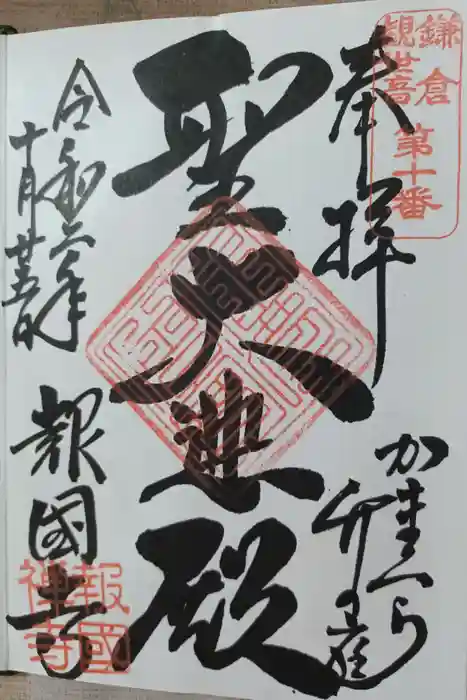 鎌倉
観世音
第十番
奉拝
かまくら
竹の庭
聖大悲殿
令和
十月廿五日
報國寺
報國
禅寺